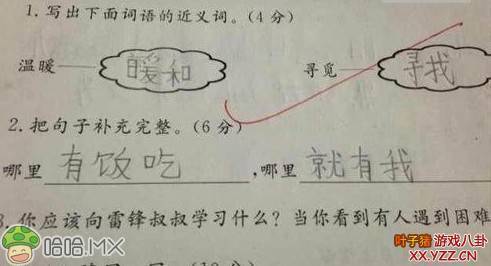 1. 写出下面词语的近义词。(4分)
温暖 暖和 寻觅 寻我
2. 把句子补充完整。(6分)
哪里 有饭吃 ,哪里 就有我
3. 你应该向雷锋叔叔学习什么？当你看到有人遇到困难
哈哈.MX
叶子猪 游戏八卦
XX.YZZ.CN